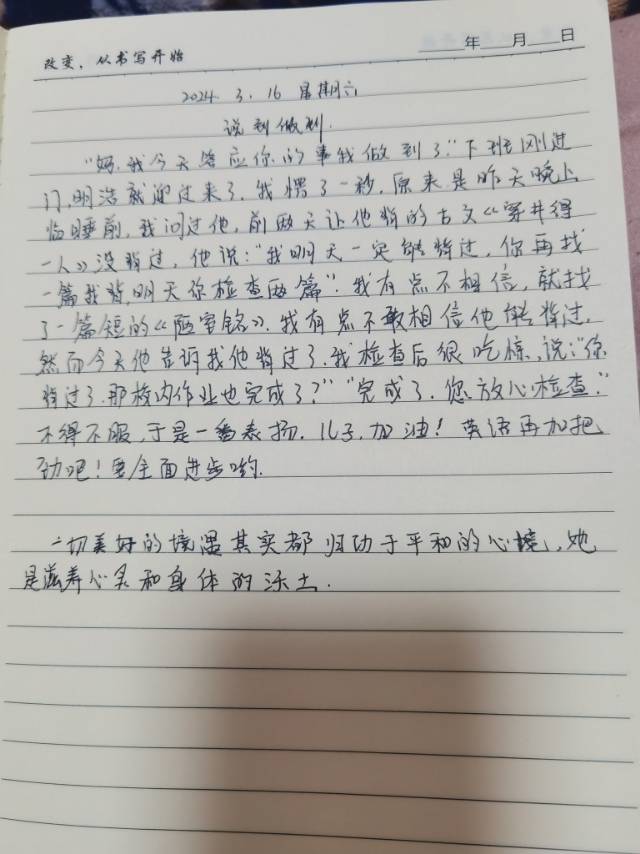 改变，从书写开始
年 月 日
2024. 3. 16 星期六
说到做到.
“妈,我今天答应你的事我做到了.”下班刚进
门,明浩就迎过来了.我愣了一秒,原来是昨天晚上
临睡前,我问过他,前两天让他背的古文《穿井得
一人》没背过,他说:“我明天一定能背过,你再找
一篇我背,明天你检查两篇”.我有点不相信,就找
了一篇短的《陋室铭》.我有点不敢相信他能背过.
然而今天他告诉我他背过了.我检查后很吃惊,说:“你
背过了.那校内作业也完成了?”“完成了.您放心检查.”
不得不服,于是一番表扬.儿子,加油! 英语再加把
劲吧!要全面进步哟.
一切美好的境遇其实都归功于平和的心境,她
是滋养心灵和身体的沃土.